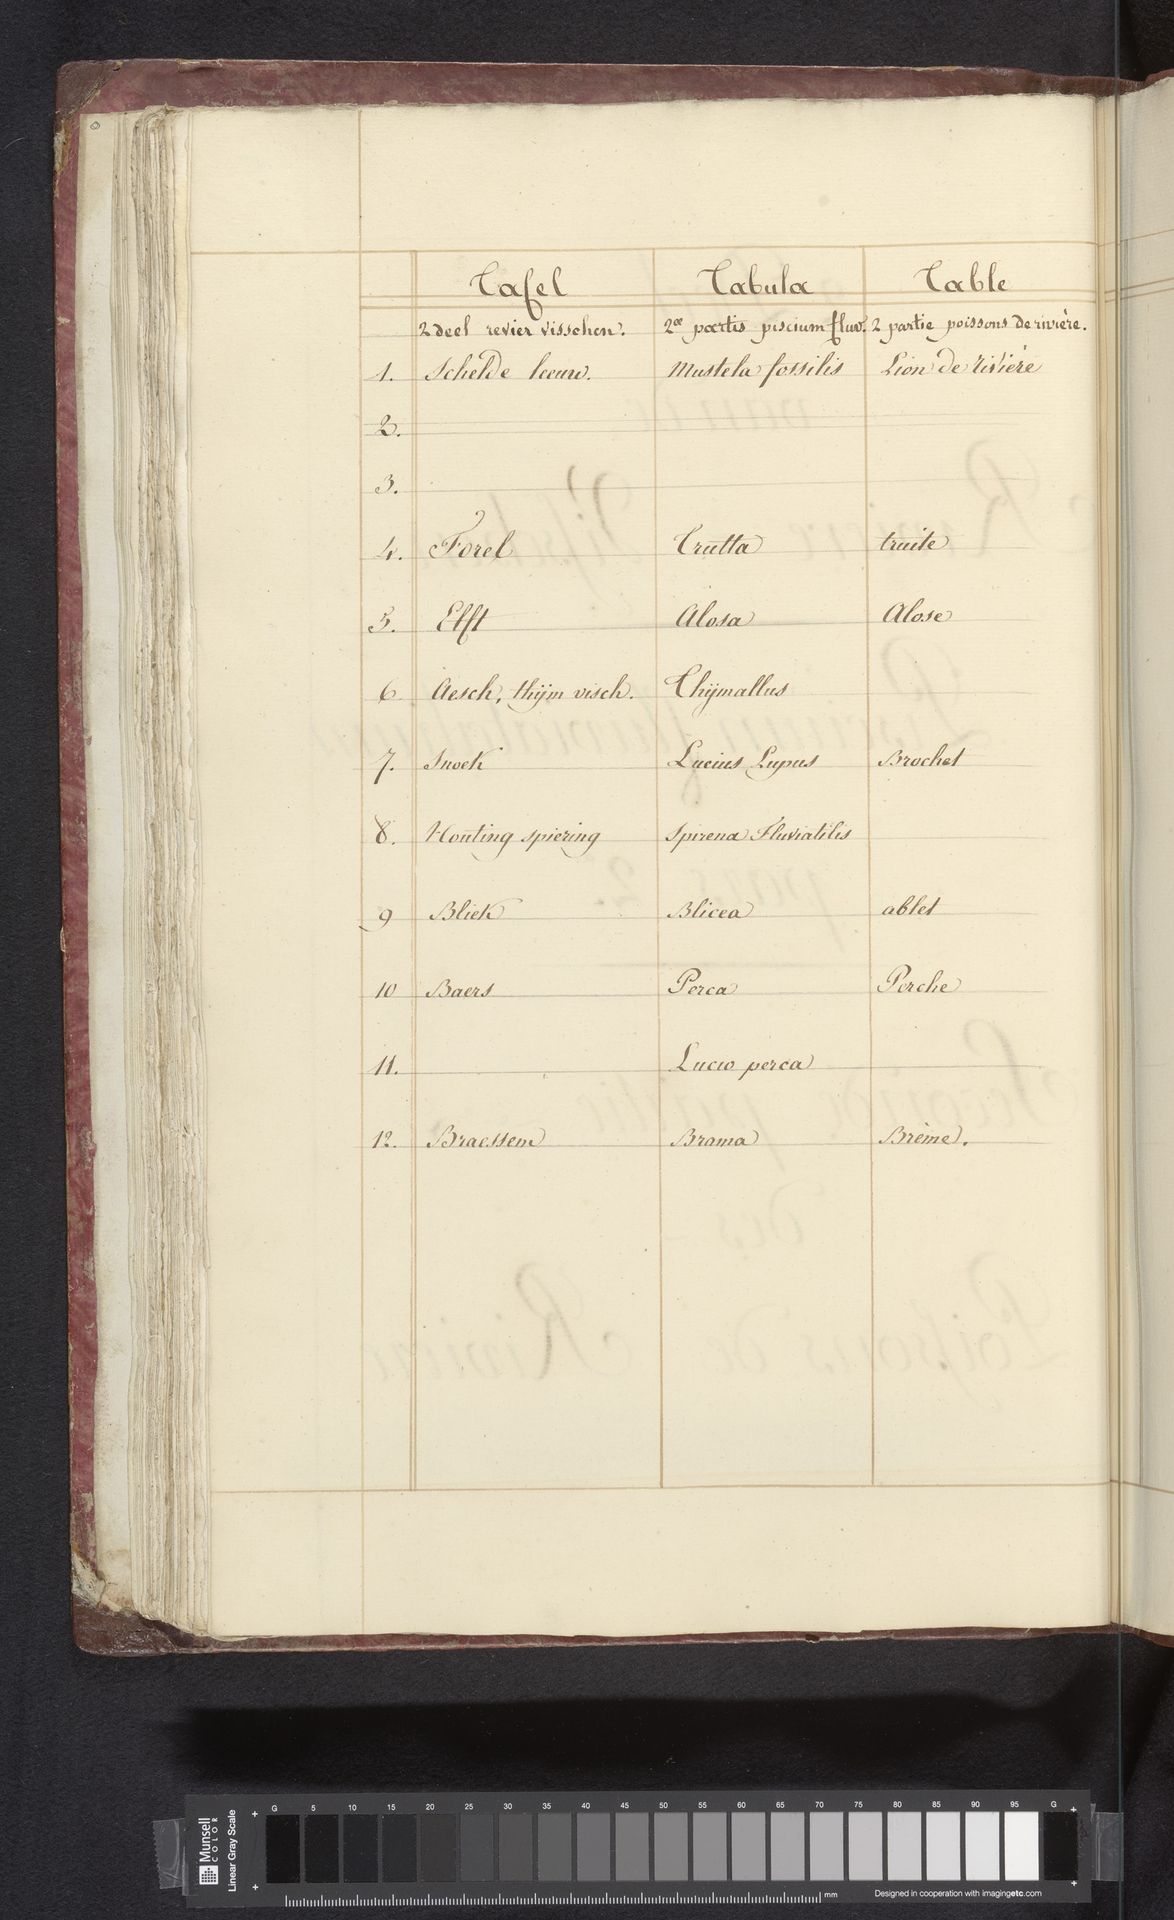 Tafel Tabula Table
2 deel revier visschen. 2ae partis piscium fluv. 2 partie poissons de rivière.
1. Schelde leeuw. Mustela fossilis Lion de rivière
2.
3.
4. Forel Trutta truite
5. Elft Alosa Alose
6 Aesch, thÿm visch. Thÿmallus
7. Snoek Lucius Lupus Brochet
8. Houting spiering Spirena Fluviatilis
9 Bliek Blicea ablet
10 Baers Perca Perche
11. Lucio perca
12. Braessem Brama Brème.
Munsell
COLOR
Linear Gray Scale
G 5 10 15 20 25 30 35 40 45 50 55 60 65 70 75 80 85 90 95 G
mm Designed in cooperation with imagingetc.com